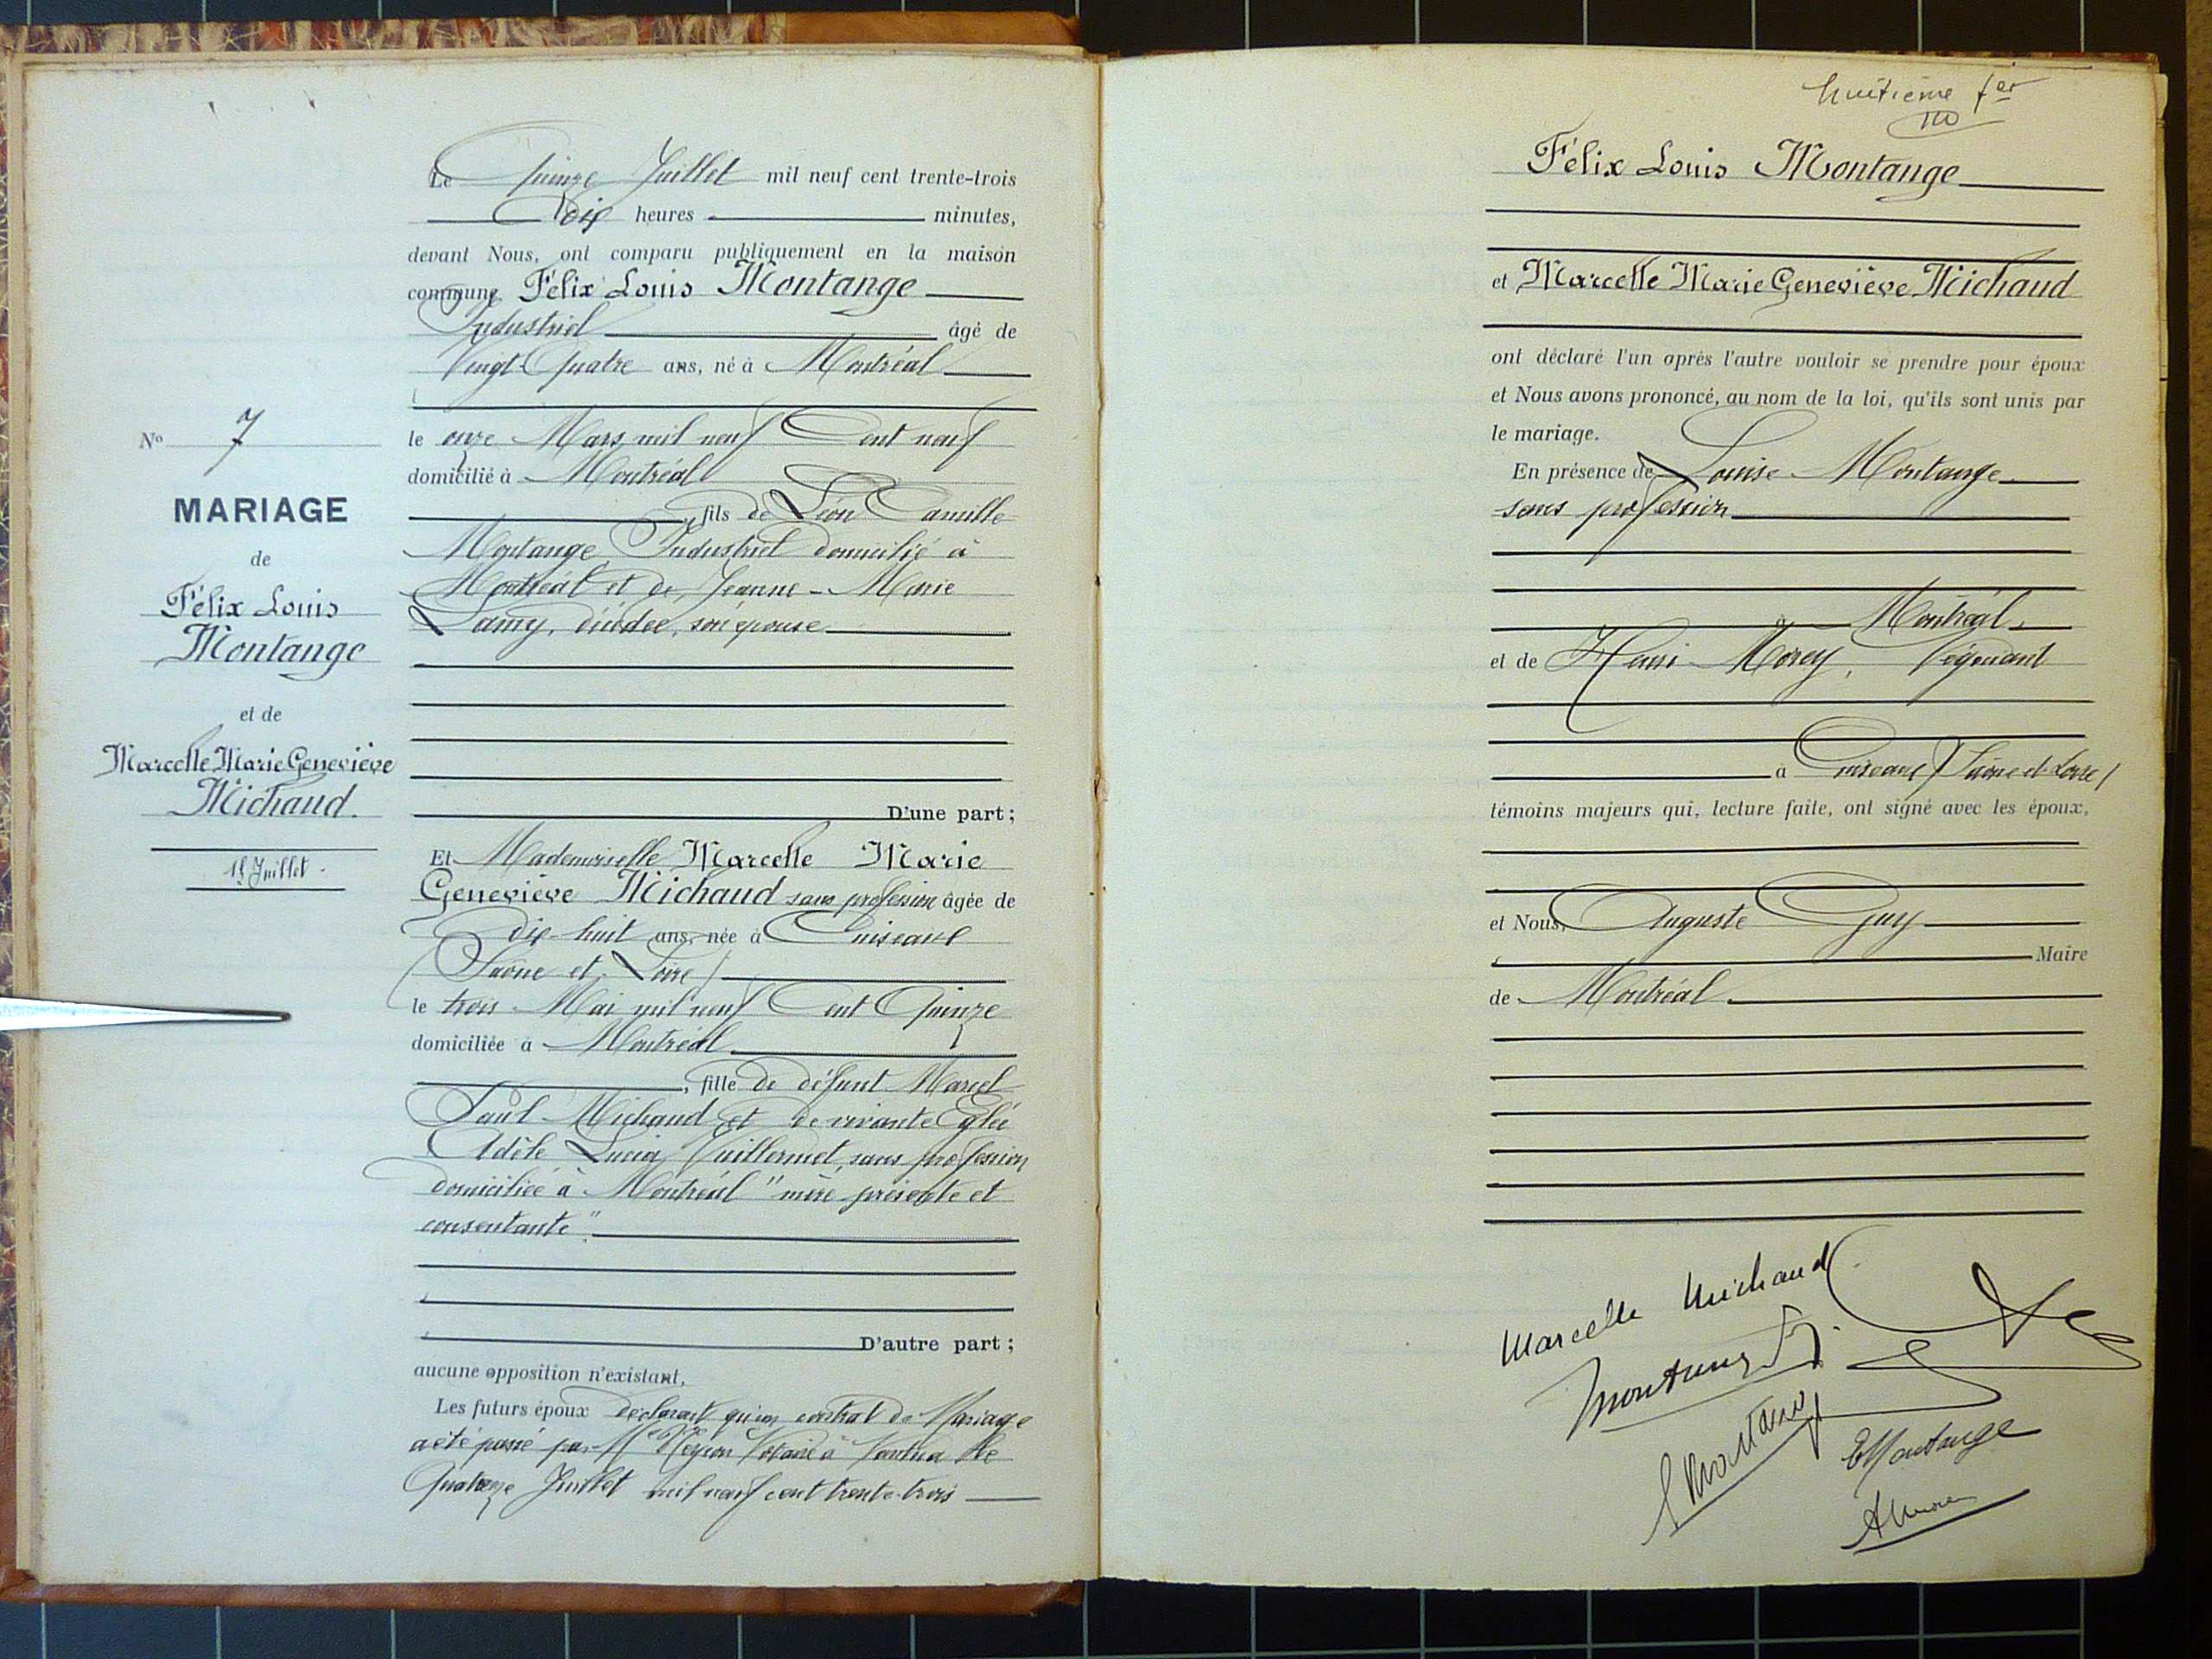 Le Quinze Juillet mil neuf cent trente-trois
dix heures minutes,
devant Nous, ont comparu publiquement en la maison
commune Félix Louis Montange
Industriel âgé de
Vingt-Quatre ans, né à Montréal
le onze Mars mil neuf Cent neuf
domicilié à Montréal
, fils de Léon Camille
Montange, Industriel domicilié à
Montréal et de Jeanne-Marie
Lamy, décédée, son épouse
D'une part;
N° 7
MARIAGE
de
Félix Louis
Montange
et de
Marcelle Marie Geneviève
Michaud.
15 Juillet
Et Mademoiselle Marcelle Marie
Geneviève Michaud sans profession âgée de
dix-huit ans, née à Cuiseaux
(Saône et Loire)
le trois Mai mil neuf Cent Quinze
domiciliée à Montréal
, fille de défunt Marcel
Paul Michaud et de vivante Eglée
Adèle Lucia Vuillermet, sans profession
domiciliée à Montréal "mère présente et
consentante".
D'autre part;
aucune opposition n'existant,
Les futurs époux déclarent qu'un contrat de Mariage
a été passé par Me Notaire à Nantua le
Quatorze Juillet mil neuf cent trente-trois
huitième fer
Félix Louis Montange
et Marcelle Marie Geneviève Michaud
ont déclaré l'un après l'autre vouloir se prendre pour époux
et Nous avons prononcé, au nom de la loi, qu'ils sont unis par
le mariage.
En présence de Louise Montange
sans profession
Montréal,
et de Henri Morey, Négociant
à Cuiseaux (Saône et Loire)
témoins majeurs qui, lecture faite, ont signé avec les époux,
et Nous, Auguste Guy
Maire
de Montréal
Marcelle Michaud
Montange
L Montange
E Montange